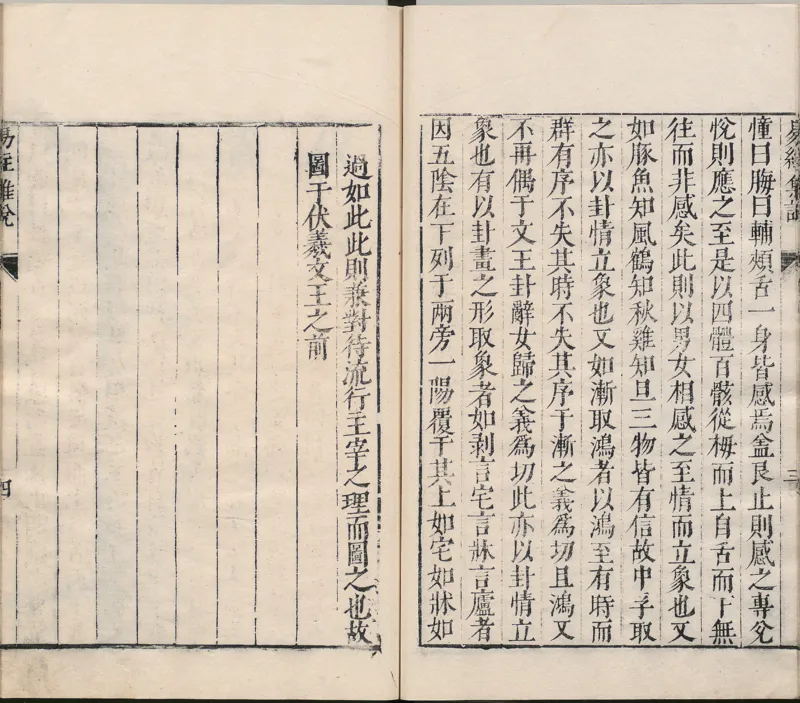 易經集說
憧曰脢曰輔頰舌一身皆感焉盖艮止則感之專兌
悅則應之至是以四體百骸從栂而上自舌而下無
往而非感矣此則以男女相感之至情而立象也又
如豚魚知風鶴知秋雞知旦三物皆有信故中孚取
之亦以卦情立象也又如漸取鴻者以鴻至有時而
群有序不失其時不失其序于漸之義爲切且鴻又
不再偶于文王卦辭女歸之義爲切此亦以卦情立
象也有以卦畫之形取象者如剥言宅言牀言廬者
因五陰在下列于兩旁一陽覆于其上如宅如牀如
三
過如此此則兼對待流行主宰之理而圖之也故
圖于伏羲文王之前
易經雜說
四